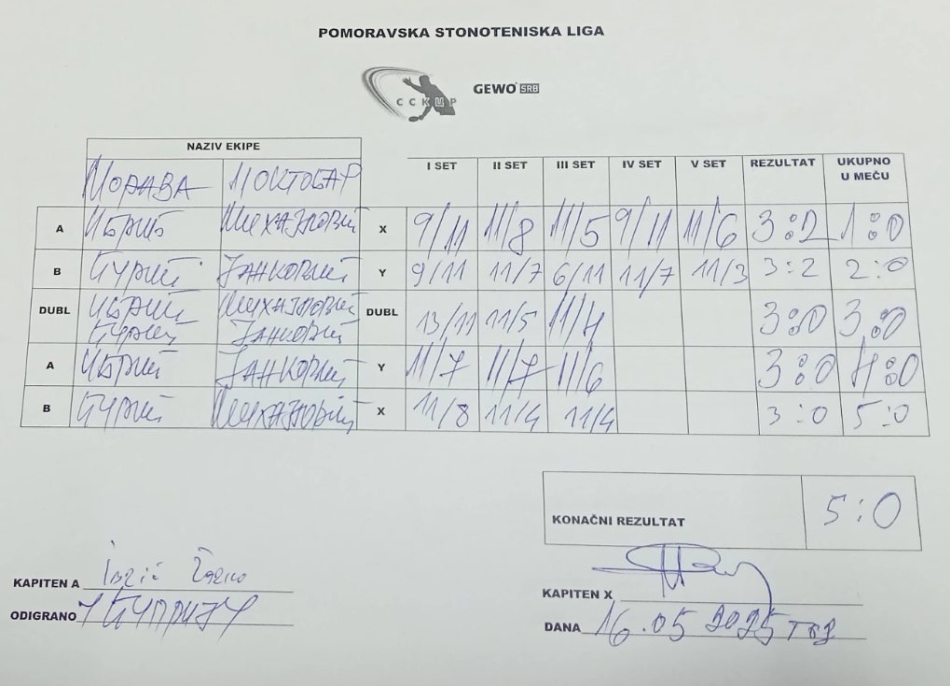 POMORAVSKA STONOTENISKA LIGA
CCKUP GEWO SRB
NAZIV EKIPE
I SET II SET III SET IV SET V SET REZULTAT UKUPNO U MEČU
МОРАВА 11 ОКТОБАР
A X 9/11 11/8 11/5 9/11 11/6 3:2 1:0
B ЈАНКОВИЋ Y 9/11 11/7 6/11 11/7 11/3 3:2 2:0
DUBL МИХАЈЛОВИЋ DUBL 13/11 11/5 11/4 3:0 3:0
ЈАНКОВИЋ
A ЈАНКОВИЋ Y 11/7 11/7 11/6 3:0 4:0
B МИХАЈЛОВИЋ X 11/8 11/4 11/4 3:0 5:0
KONAČNI REZULTAT 5:0
KAPITEN A
KAPITEN X
ODIGRANO
DANA 16.05 2025